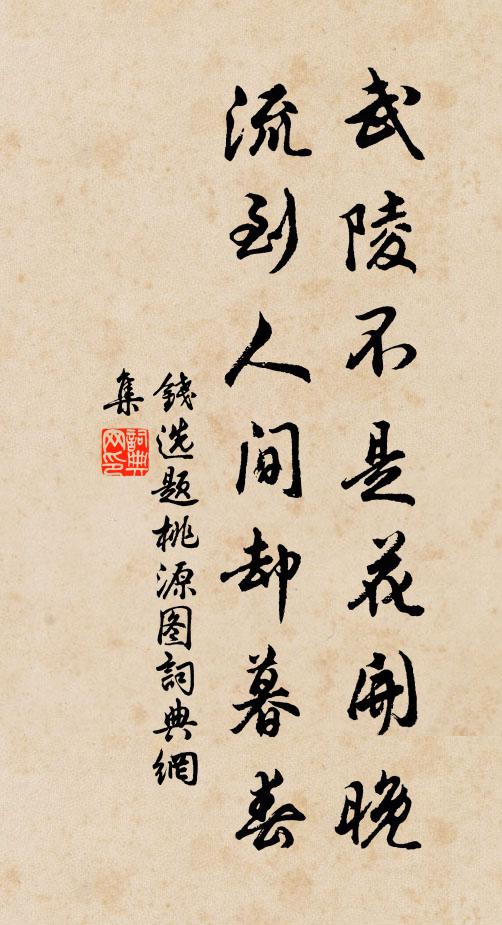 武陵不是花開晚
流到人間却暮春
錢选题桃源图詞典網
集
詞典网印